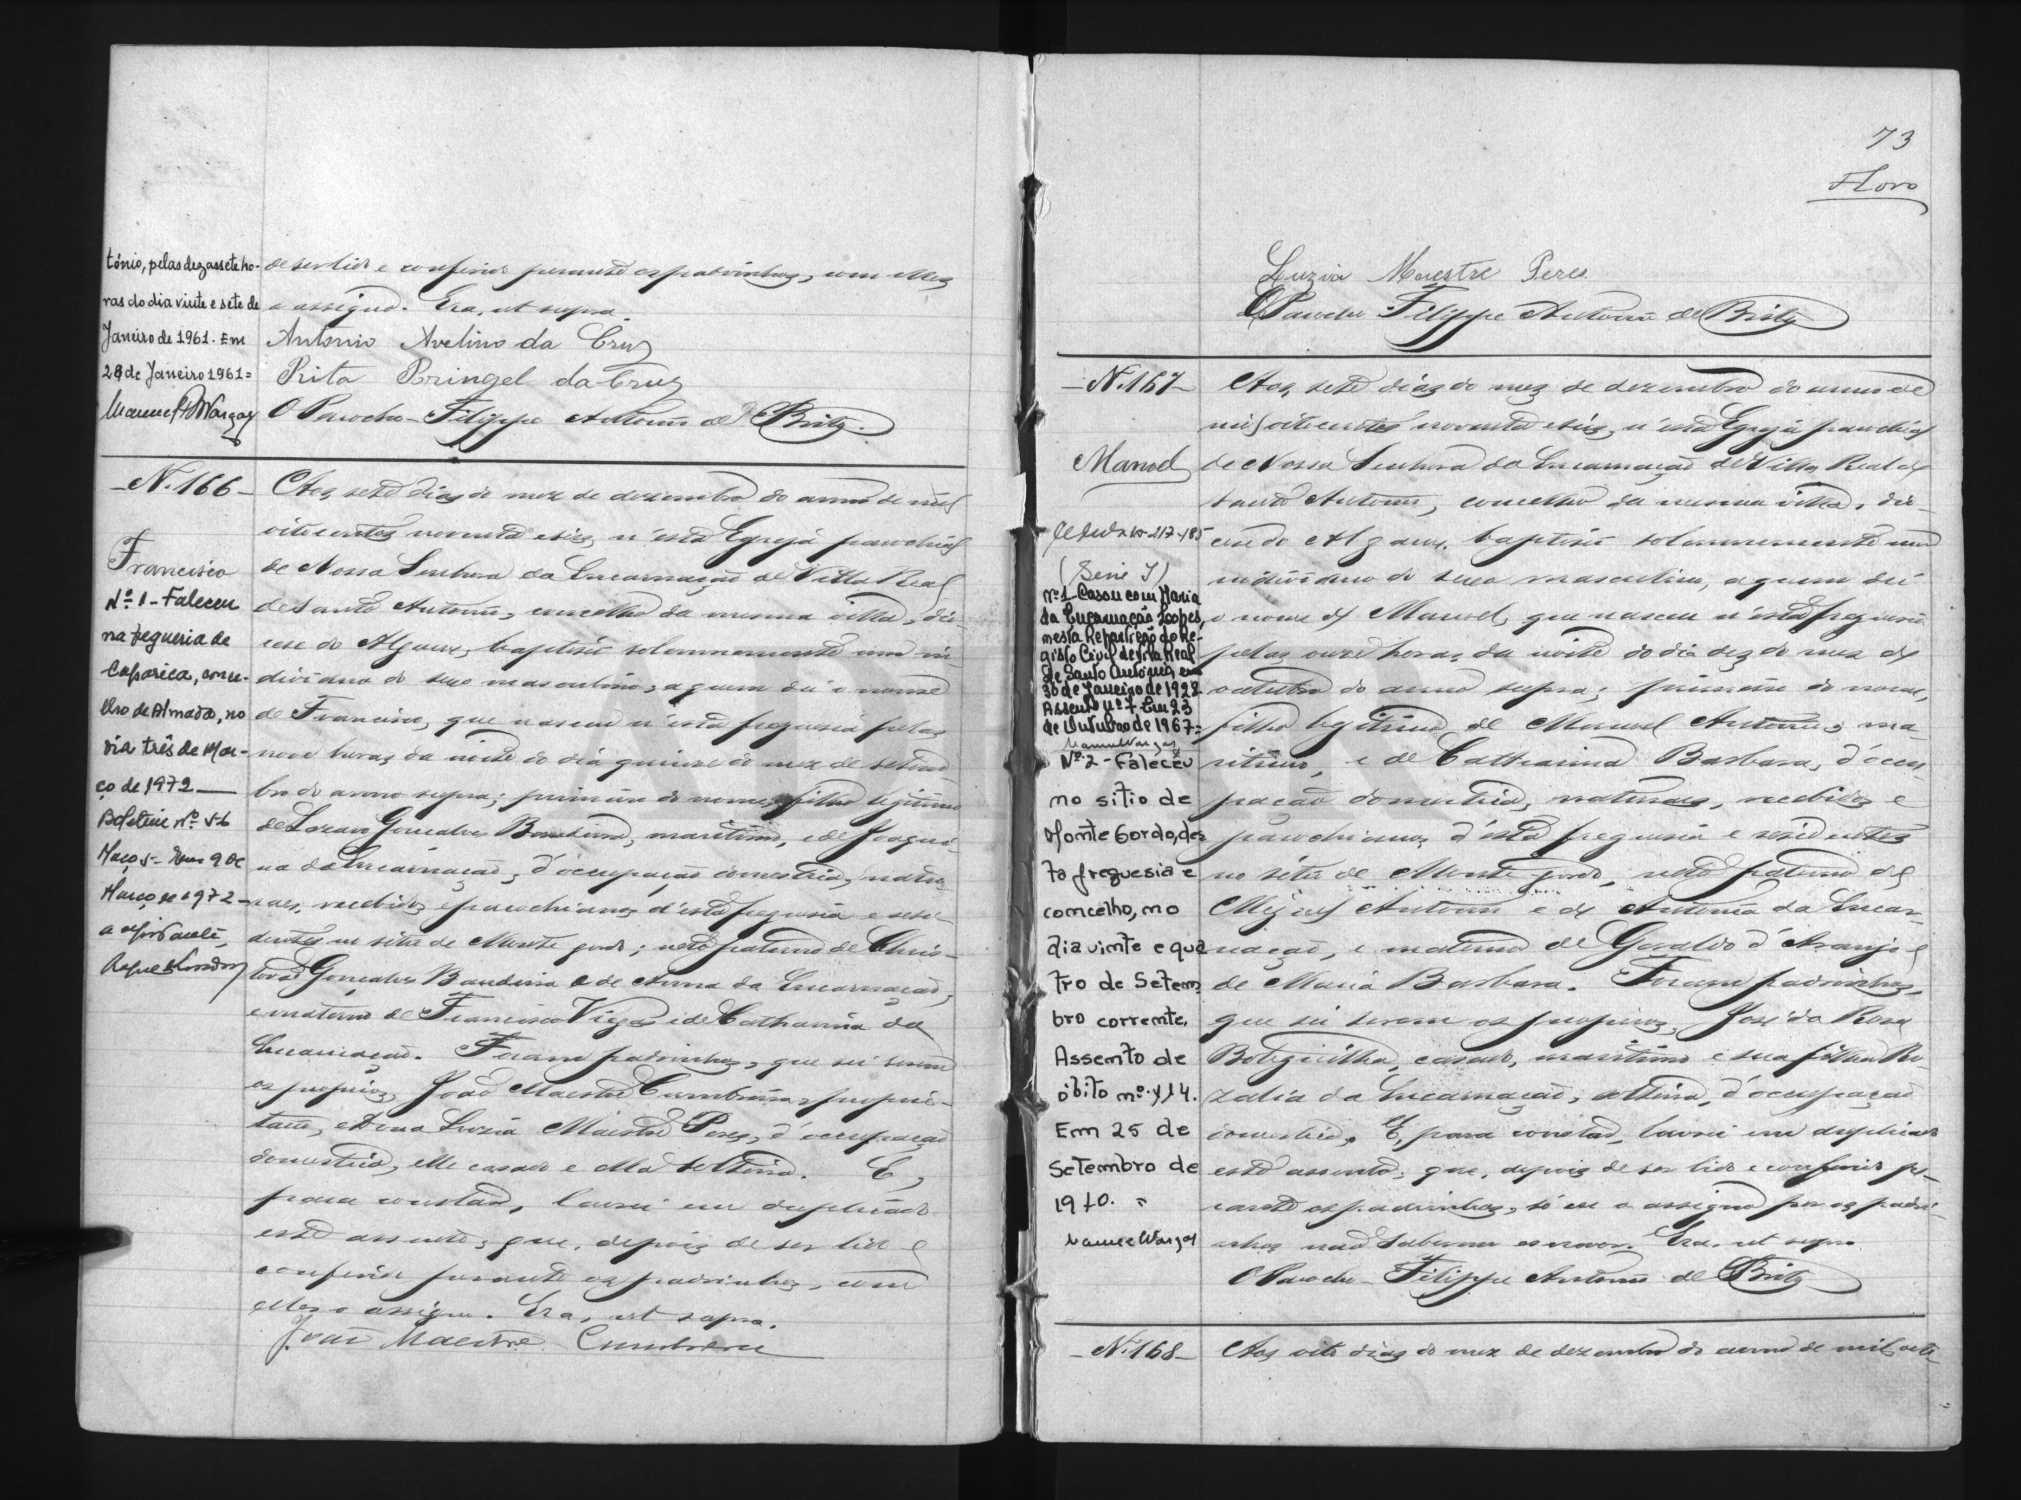 tónio, pelas dezassete ho-
ras do dia vinte e sete de
Janeiro de 1961. Em
28 de Janeiro 1961=
de ser lido e conferido perante os padrinhos, com elles
o assigno. Era, ut supra.
Antonio Avelino da Cruz
Rita Pringel da Cruz
O Parocho Filippe Antonio de Brito.
N.166
Francisco
Nº 1 - Faleceu
na freguesia de
Caparica, conce-
lho de Almada, no
dia três de Mar-
ço de 1972
Boletim nº 56
Maço 5- Em 9 de
Março de 1972
Aos sete dias do mez de dezembro do anno de mil
oitocentos noventa e seis, n'esta Egreja parochial
de Nossa Senhora da Encarnação de Villa Real
de Santo Antonio, concelho da mesma villa, dio-
cese do Algarve, baptisei solemnemente um in-
dividuo do sexo masculino, a quem dei o nome
de Francisco, que nasceu n'esta freguesia pelas
nove horas da noite do dia quinze do mez de setem-
bro do anno supra; primeiro do nome, filho legitimo
de Lazaro Gonçalves Bandeira, maritimo, e de Joaqui-
na da Encarnação, d'occupação domestica, natu-
raes, recebidos e parochianos d'esta freguesia e resi-
dentes no sitio de Monte gordo; neto paterno de Chris-
tovão Gonçalves Bandeira e de Anna da Encarnação,
e materno de Francisco Viegas e de Catharina da
Encarnação. Foram padrinhos, que sei serem
os proprios, João Maestre Cumbrera, proprie-
tario, e Dona Luzia Maestre Peres, d'occupação
domestica, elle casado e ella solteira. E,
para constar, lavrei em duplicado
este assento, que, depois de ser lido e
conferido perante os padrinhos, com
elles o assigno. Era, ut supra.
João Maestre Cumbrera
73
Luzia Maestre Peres
O Parocho Filippe Antonio de Brito
N.167
Manoel
(Serie I)
nº 1 Casou com Maria
da Encarnação Lopes,
nesta Repartição do Re-
gisto Civil de Vila Real
de Santo António, em
30 de Janeiro de 1928
Assento nº 7. Em 23
de Outubro de 1967=
Nº 2 - Faleceu
no sitio de
Monte Gordo, des
ta freguesia e
concelho, no
dia vinte e qua
tro de Setem
bro corrente.
Assento de
óbito nº. 114.
Em 25 de
Setembro de
1970.
Aos sete dias do mez de dezembro do anno de
mil oitocentos noventa e seis, n'esta Egreja parochial
de Nossa Senhora da Encarnação de Villa Real de
Santo Antonio, concelho da mesma villa, dio-
cese do Algarve, baptisei solemnemente um
individuo do sexo masculino, a quem dei
o nome de Manoel, que nasceu n'esta freguesia
pelas onze horas da noite do dia dez do mez de
outubro do anno supra; primeiro do nome,
filho legitimo de Manoel Antonio, ma-
ritimo, e de Catharina Barbara, d'occu-
pação domestica, naturaes, recebidos e
parochianos d'esta freguesia e residentes
no sitio de Monte gordo, neto paterno de
Miguel Antonio e de Antonia da Encar-
nação, e materno de Geraldo d'Araujo e
de Maria Barbara. Foram padrinhos,
que sei serem os proprios, José da Rosa
Botequilha, casado, maritimo e sua filha Ro-
zalia da Encarnação, solteira, d'occupação
domestica. E, para constar, lavrei em duplicado
este assento, que, depois de ser lido e conferido pe-
rante os padrinhos, só eu o assigno por os padri-
nhos não saberem escrever. Era, ut supra
O Parocho Filippe Antonio de Brito
N.168
Aos oito dias do mez de dezembro do anno de mil oito